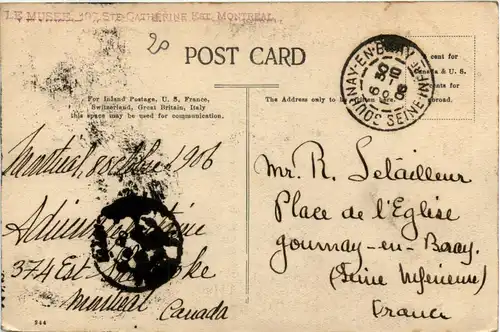 LE MUSEE, 197, STE. CATHERINE EST. MONTREAL.
20
POST CARD
For Inland Postage, U. S. France,
Switzerland, Great Britain, Italy
this space may be used for communication.
The Address only to be
cent for
& U. S.
ts for
road.
GOURNAY-EN-BRAY
6 30
8-10
06
SEINE INF
Montréal, 8 octobre 1906
374 Est
Montréal Canada
Mr. R. Letailleur
Place de l'Eglise
Gournay-en-Bray.
(Seine Inferieure)
France
944